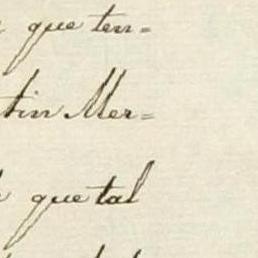 que ten=
tin Mer=
que tal